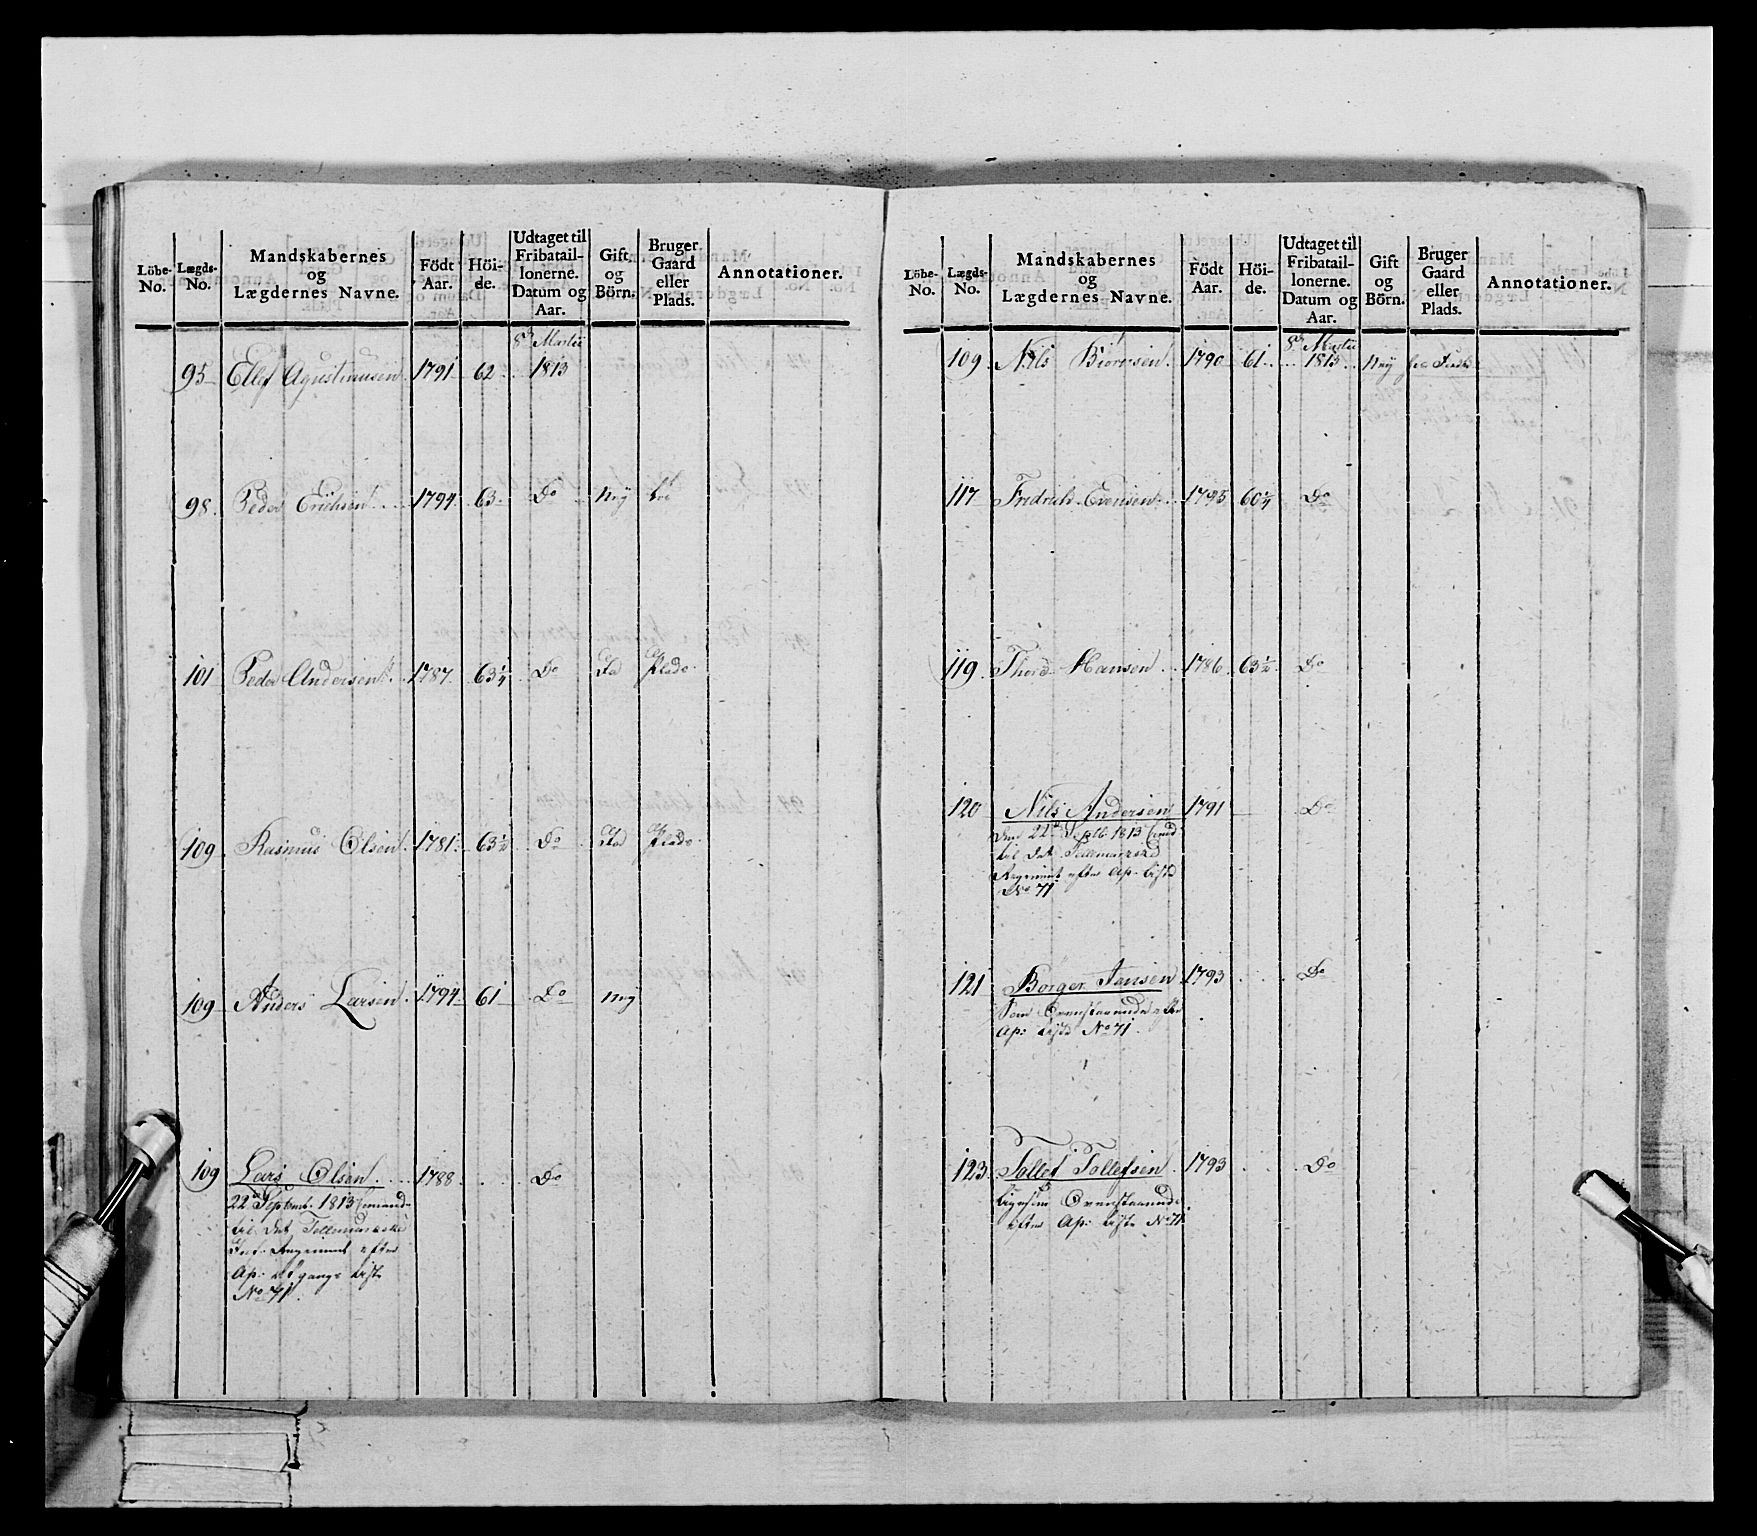 Löbe-No. Lægds-No. Mandskabernes og Lægdernes Navne. Födt Aar. Höi-de. Udtaget til Fribatail-lonerne. Datum og Aar. Gift og Börn. Bruger Gaard eller Plads. Annotationer.
8de Martii
95 Ellef Agustinusen 1791 62 1813
98. Peder Erichsen 1794 63 Do Nei
101 Peder Andersen 1787 63 1/4 Do Ja Plads
109 Rasmus Olsen 1781 63 1/2 Do Ja Plads
109 Anders Larsen 1794 61 Do Nei
109 Lars Olsen 1788 Do
22de Septemb. 1813
til det Tellemarkske
Inf. Regiment efter
Ap: afgangs Liste
No 71.
Löbe-No. Lægds-No. Mandskabernes og Lægdernes Navne. Födt Aar. Höi-de. Udtaget til Fribatail-lonerne. Datum og Aar. Gift og Börn. Bruger Gaard eller Plads. Annotationer.
8de Martii
109 Nils Biörnsen 1790 61 1813 Nei
117 Fredrich Evensen 1795 60 1/4 Do
119 Thord Hansen 1786 63 1/2 Do
120 Nils Andersen 1791 Do
Den 22de Septb 1813
til det Tellemarkske
Regiment efter Ap. Liste
No 71
121 Börger Jansen 1793 Do
Som Ovenstaaende efter
Ap: Liste No 71.
123 Tollef Tollefsen 1793 Do
Ligesom Ovenstaaende
efter Ap: Liste No 71.